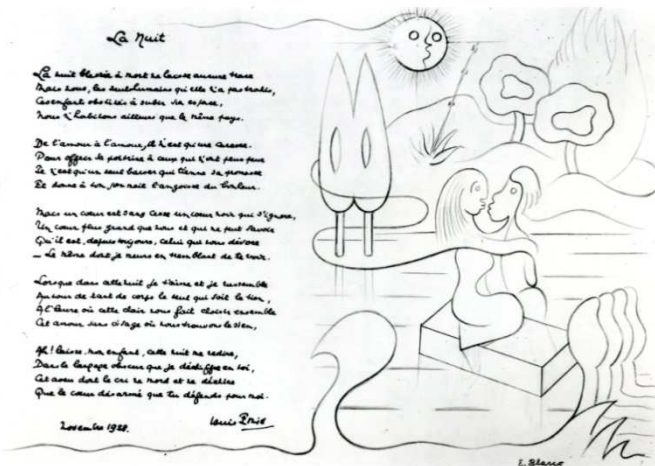 La Nuit
La nuit blessée à mort ne laisse aucune trace
Mais nous, les seuls humains qu'elle n'a pas trahis,
Ces enfants obstinés à subir sa espace,
Nous n'habitons ailleurs que le même pays.
De l'amour à l'amour, il n'est qu'une caresse.
Pour offrir sa poitrine à ceux qui n'ont plus peur
Ce n'est qu'un seul baiser qui tienne sa promesse
Et donne à son, son nait l'angoisse du bonheur.
Mais un cœur est sans cesse un cœur noir qui s'ignore,
Un cœur plus grand que nous et qui ne peut savoir
Qu'il est, depuis toujours, celui qui nous dévore
— Le même dont je meurs en tremblant de te voir.
Lorsque dans cette nuit je t'aime et je rassemble
Autour de tant de corps le seul qui soit le tien,
A l'heure où cette chair nous fait choisir ensemble
Cet amour sans visage où nous trouvons le sien,
Ah! laisse, mon enfant, cette nuit me redire,
Dans le langage obscur que je déchiffre en toi,
Cet aveu dont le cri se mord et se déchire
Que le cœur désarmé que tu défends pour moi.
Novembre 1928. Louis Émié
E. Blanc